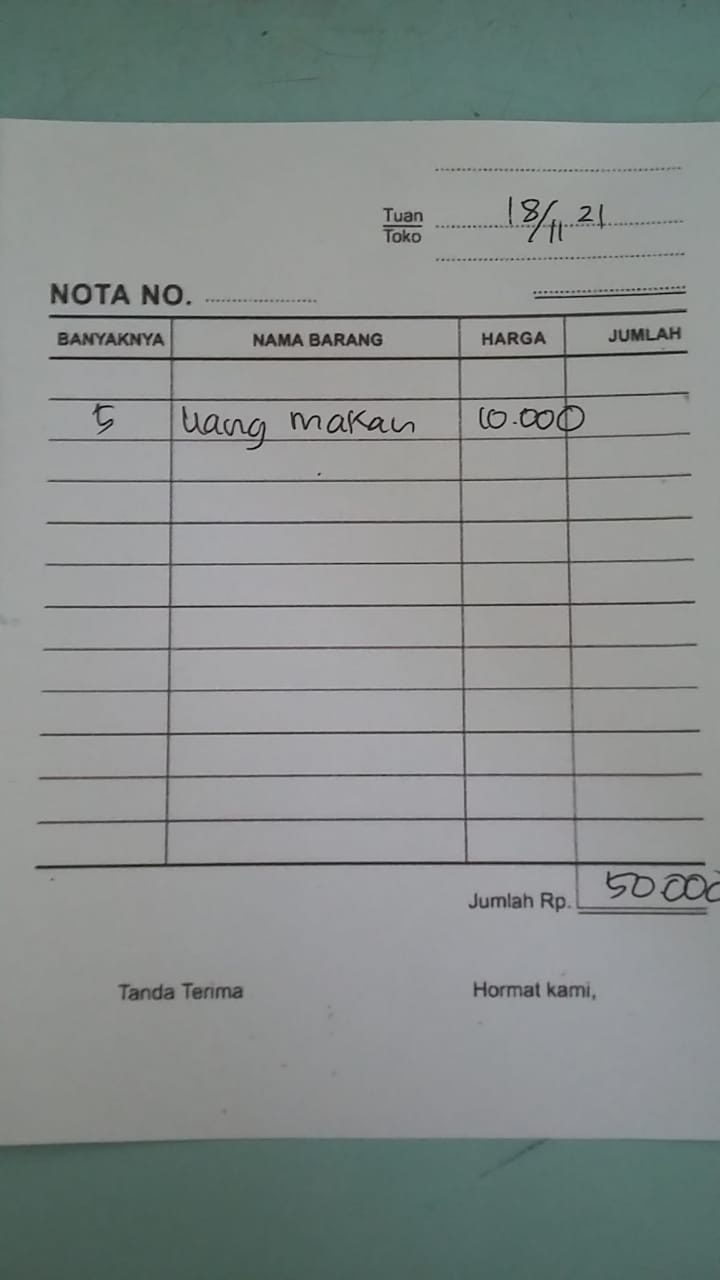 18/11 21
Tuan
Toko
NOTA NO.
BANYAKNYA NAMA BARANG HARGA JUMLAH
5 uang makan 10.000
Jumlah Rp. 50.000
Tanda Terima Hormat kami,